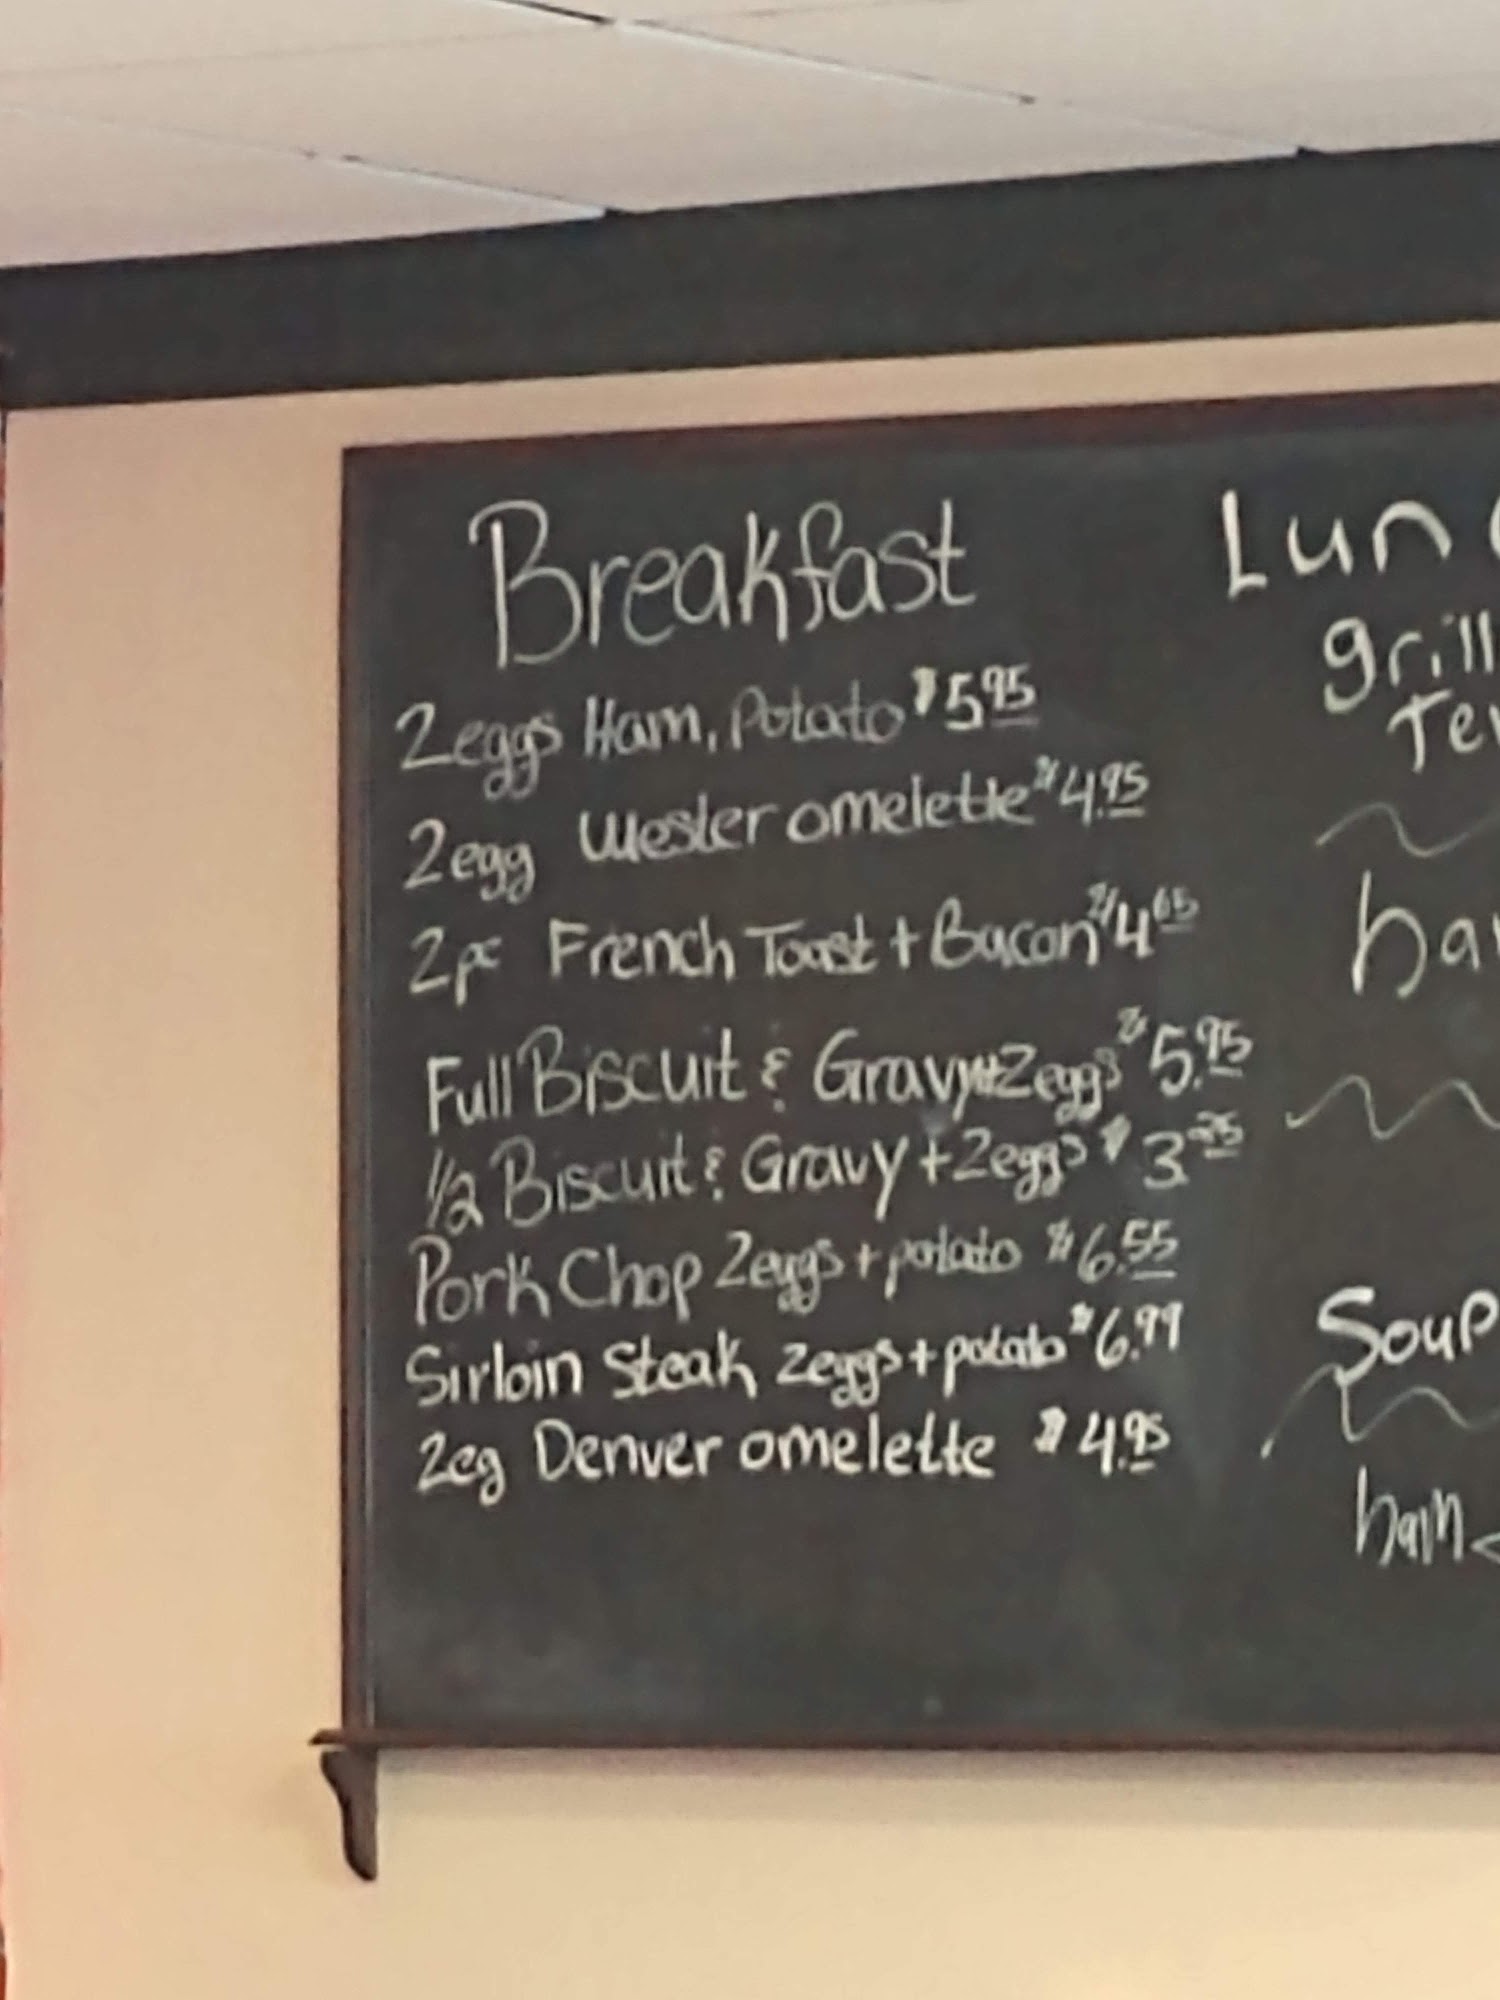 Breakfast
2eggs Ham, Potato $5.95
2egg Wester omelette $4.95
2pc French Toast + Bacon $4.65
Full Biscuit & Gravy + 2eggs $5.95
1/2 Biscuit & Gravy + 2eggs $3.
Pork Chop 2eggs + potato $6.55
Sirloin Steak 2eggs + potato $6.99
2eg Denver omelette $4.95
Lun
grill
Ter
ha
Soup
ham